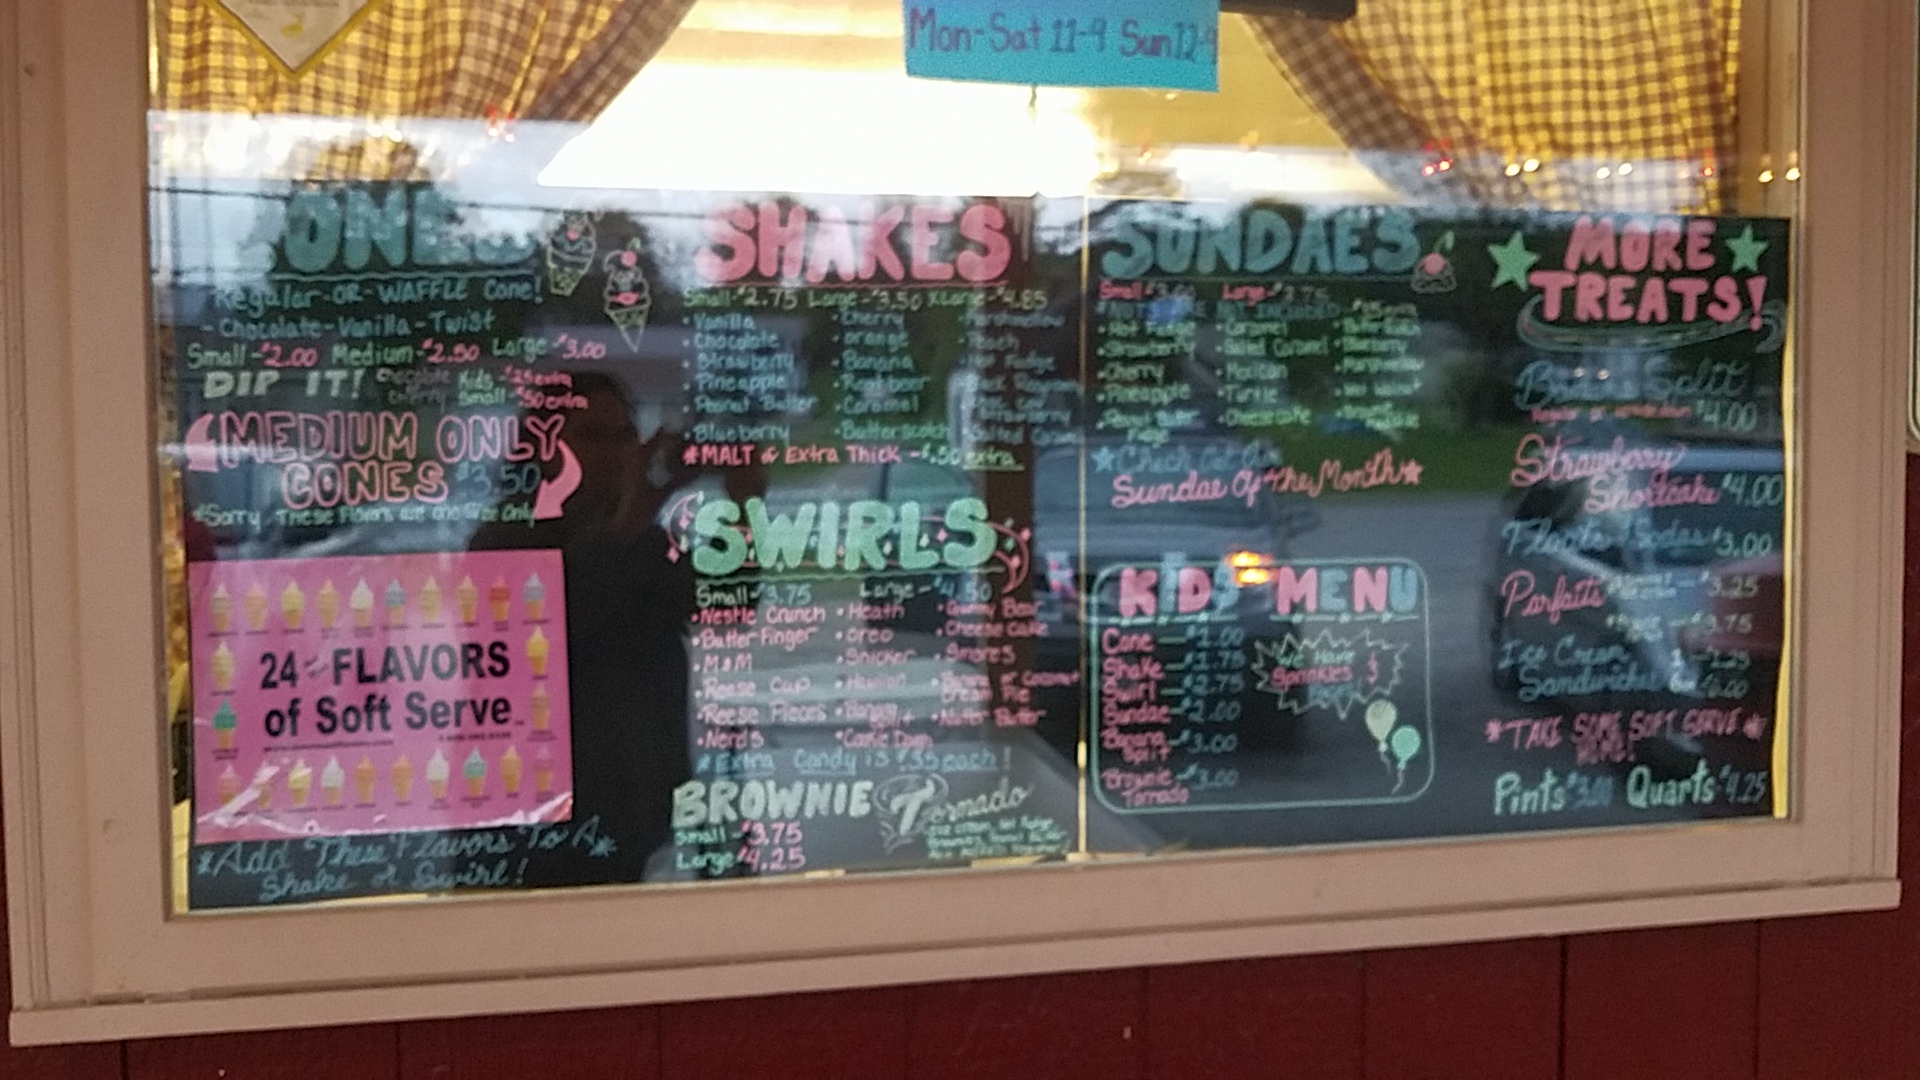 Mon-Sat 11-9 Sun 12-9
Regular-OR-WAFFLE Cone!
- Chocolate-Vanilla-Twist
Small-$2.00 Medium-$2.50 Large-$3.00
DIP IT! Kids-$.25 extra
Cherry Small-$.50 extra
MEDIUM ONLY
CONES $3.50
*Sorry, These Flavors are one size Only
24 FLAVORS
of Soft Serve
*Add These Flavors To A*
Shake or Swirl!
SHAKES
Small-$2.75 Large-$3.50 XLarge-$4.85
•Vanilla •Cherry
•Chocolate •Orange •Peach
•Strawberry •Banana •Hot Fudge
•Pineapple •Root beer
•Peanut Butter •Caramel
•Blueberry •Butterscotch •Salted Caramel
*MALT & Extra Thick -$.50 extra
SWIRLS
Small-$3.75 Large-$4.50
•Nestle Crunch •Heath •Gummy Bear
•Butterfinger •Oreo •Cheese Cake
•M&M •Snicker •Smores
•Reese Cup •Hawaiian
•Reese Pieces •Banana Split •Nutter Butter
•Nerds •Cookie Dough
*Extra Candy is $.35 each!
BROWNIE Tornado
Small-$3.75
Large-$4.25
SUNDAES
Small Large-$3.75
•Hot Fudge •Caramel
•Strawberry •Salted Caramel •Blueberry
•Cherry •Mexican •Marshmallow
•Pineapple •Turtle
•Peanut Butter Fudge •Cheesecake
*Check Out Our
Sundae Of the Month*
KIDS MENU
Cone-$1.00
Shake-$1.75
Swirl-$2.75
Sundae-$2.00
Banana Split-$3.00
Brownie Tornado-$3.00
We Have
Sprinkles
MORE
TREATS!
Banana Split
$4.00
Strawberry
Shortcake $4.00
Floats/Sodas $3.00
Parfaits $3.25
$3.75
Ice Cream
Sandwiches
*TAKE SOME SOFT SERVE*
HOME!
Pints $3.00 Quarts $4.25